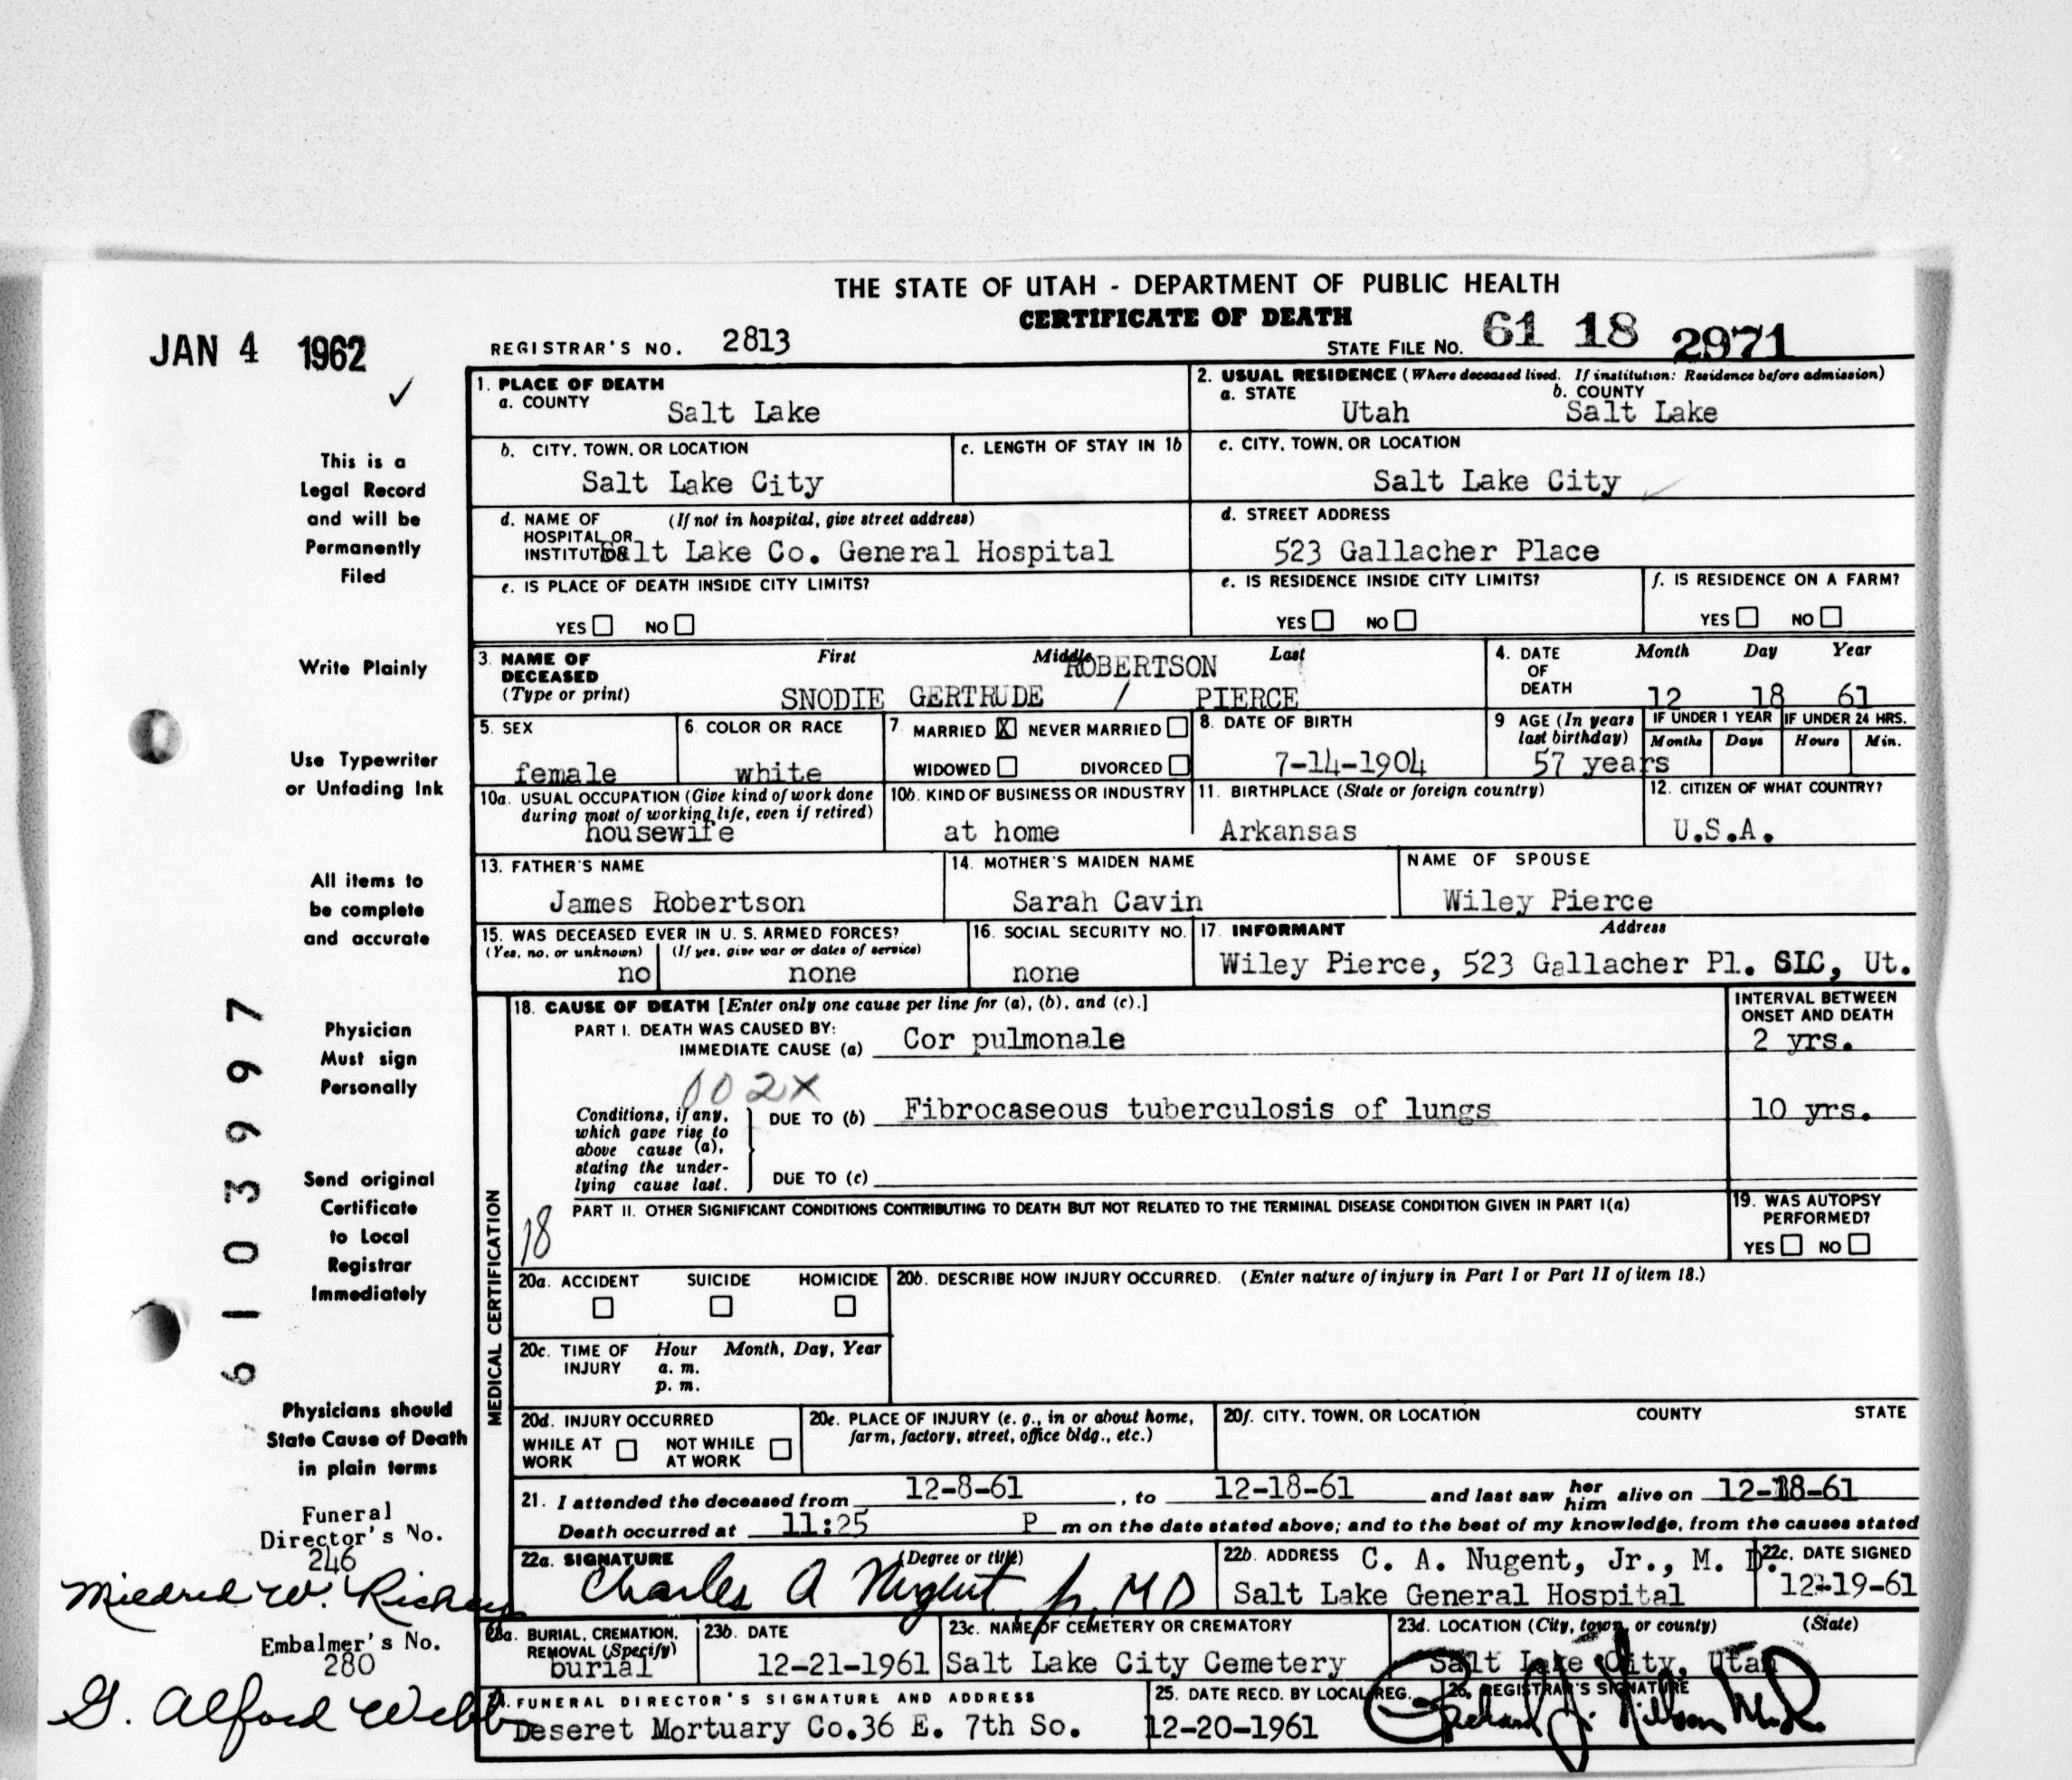 THE STATE OF UTAH - DEPARTMENT OF PUBLIC HEALTH
CERTIFICATE OF DEATH
JAN 4 1962
REGISTRAR'S NO. 2813
STATE FILE NO. 61 18 2971
✓
1. PLACE OF DEATH
a. COUNTY Salt Lake
2. USUAL RESIDENCE (Where deceased lived. If institution: Residence before admission)
a. STATE Utah b. COUNTY Salt Lake
b. CITY, TOWN, OR LOCATION Salt Lake City
c. LENGTH OF STAY IN 1b
c. CITY, TOWN, OR LOCATION Salt Lake City
d. NAME OF HOSPITAL OR INSTITUTION (If not in hospital, give street address)
Salt Lake Co. General Hospital
d. STREET ADDRESS
523 Gallacher Place
e. IS PLACE OF DEATH INSIDE CITY LIMITS?
YES NO
e. IS RESIDENCE INSIDE CITY LIMITS?
YES NO
f. IS RESIDENCE ON A FARM?
YES NO
3. NAME OF DECEASED (Type or print)
First Middle Last
ROBERTSON
SNODIE GERTRUDE / PIERCE
4. DATE OF DEATH
Month Day Year
12 18 61
5. SEX
female
6. COLOR OR RACE
white
7. MARRIED X NEVER MARRIED
WIDOWED DIVORCED
8. DATE OF BIRTH
7-14-1904
9 AGE (In years last birthday)
57 years
IF UNDER 1 YEAR
Months Days
IF UNDER 24 HRS.
Hours Min.
10a. USUAL OCCUPATION (Give kind of work done during most of working life, even if retired)
housewife
10b. KIND OF BUSINESS OR INDUSTRY
at home
11. BIRTHPLACE (State or foreign country)
Arkansas
12. CITIZEN OF WHAT COUNTRY?
U.S.A.
13. FATHER'S NAME
James Robertson
14. MOTHER'S MAIDEN NAME
Sarah Cavin
NAME OF SPOUSE
Wiley Pierce
15. WAS DECEASED EVER IN U. S. ARMED FORCES?
(Yes, no, or unknown) (If yes, give war or dates of service)
no none
16. SOCIAL SECURITY NO.
none
17. INFORMANT Address
Wiley Pierce, 523 Gallacher Pl. SLC, Ut.
18. CAUSE OF DEATH [Enter only one cause per line for (a), (b), and (c).]
PART I. DEATH WAS CAUSED BY:
IMMEDIATE CAUSE (a) Cor pulmonale
INTERVAL BETWEEN ONSET AND DEATH
2 yrs.
002X
Conditions, if any, which gave rise to above cause (a), stating the underlying cause last.
DUE TO (b) Fibrocaseous tuberculosis of lungs
10 yrs.
DUE TO (c)
PART II. OTHER SIGNIFICANT CONDITIONS CONTRIBUTING TO DEATH BUT NOT RELATED TO THE TERMINAL DISEASE CONDITION GIVEN IN PART I(a)
18
19. WAS AUTOPSY PERFORMED?
YES NO
MEDICAL CERTIFICATION
20a. ACCIDENT SUICIDE HOMICIDE
20b. DESCRIBE HOW INJURY OCCURRED. (Enter nature of injury in Part I or Part II of item 18.)
20c. TIME OF INJURY
Hour Month, Day, Year
a. m.
p. m.
20d. INJURY OCCURRED
WHILE AT WORK NOT WHILE AT WORK
20e. PLACE OF INJURY (e. g., in or about home, farm, factory, street, office bldg., etc.)
20f. CITY, TOWN, OR LOCATION COUNTY STATE
21. I attended the deceased from 12-8-61, to 12-18-61 and last saw her him alive on 12-18-61
Death occurred at 11:25 P m on the date stated above; and to the best of my knowledge, from the causes stated
22a. SIGNATURE (Degree or title)
Charles A Nugent Jr, MD
22b. ADDRESS C. A. Nugent, Jr., M. D.
Salt Lake General Hospital
22c. DATE SIGNED
12-19-61
23a. BURIAL, CREMATION, REMOVAL (Specify)
burial
23b. DATE
12-21-1961
23c. NAME OF CEMETERY OR CREMATORY
Salt Lake City Cemetery
23d. LOCATION (City, town, or county) (State)
Salt Lake City, Utah
24. FUNERAL DIRECTOR'S SIGNATURE AND ADDRESS
Deseret Mortuary Co.36 E. 7th So.
25. DATE RECD. BY LOCAL REG.
12-20-1961
26. REGISTRAR'S SIGNATURE
This is a
Legal Record
and will be
Permanently
Filed
Write Plainly
Use Typewriter
or Unfading Ink
All items to
be complete
and accurate
Physician
Must sign
Personally
Send original
Certificate
to Local
Registrar
Immediately
Physicians should
State Cause of Death
in plain terms
6103997
Funeral
Director's No.
246
Mildred W. Richey
Embalmer's No.
280
G. Alford Webb